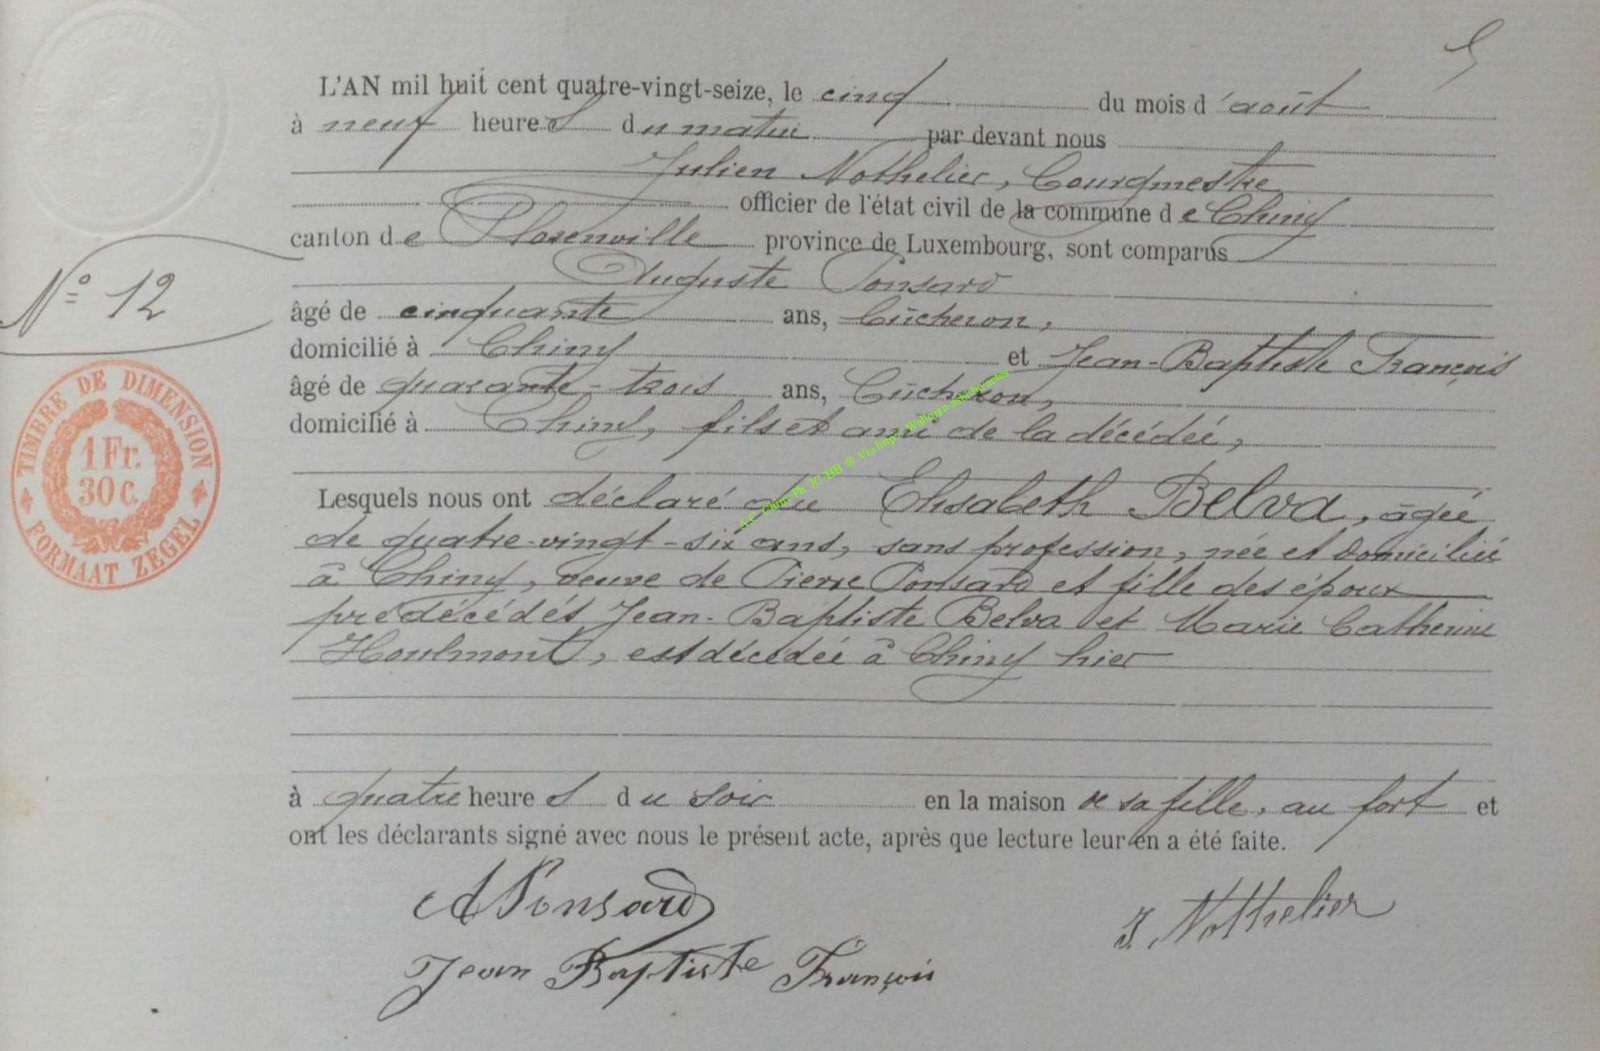 L'AN mil huit cent quatre-vingt-seize, le cinq du mois d'août
à neuf heures du matin par devant nous
Julien Nothelier, Bourgmestre
officier de l'état civil de la commune de Chiny
canton de Florenville province de Luxembourg, sont comparus
Auguste Ponsard
N° 12
âgé de cinquante ans, Bûcheron,
domicilié à Chiny et Jean-Baptiste François
âgé de quarante-trois ans, Bûcheron,
domicilié à Chiny, fils et ami de la décédée,
TIMBRE DE DIMENSION
1 Fr.
30 C.
FORMAAT ZEGEL
Lesquels nous ont déclaré que Elisabeth Belva, âgée
de quatre-vingt-six ans, sans profession, née et domiciliée
à Chiny, veuve de Pierre Ponsard et fille des époux
prédécédés Jean-Baptiste Belva et Marie Catherine
Houlmont, est décédée à Chiny hier
à quatre heures du soir en la maison de sa fille, au fort et
ont les déclarants signé avec nous le présent acte, après que lecture leur en a été faite.
A Ponsard
J. Nothelier
Jean Baptiste François